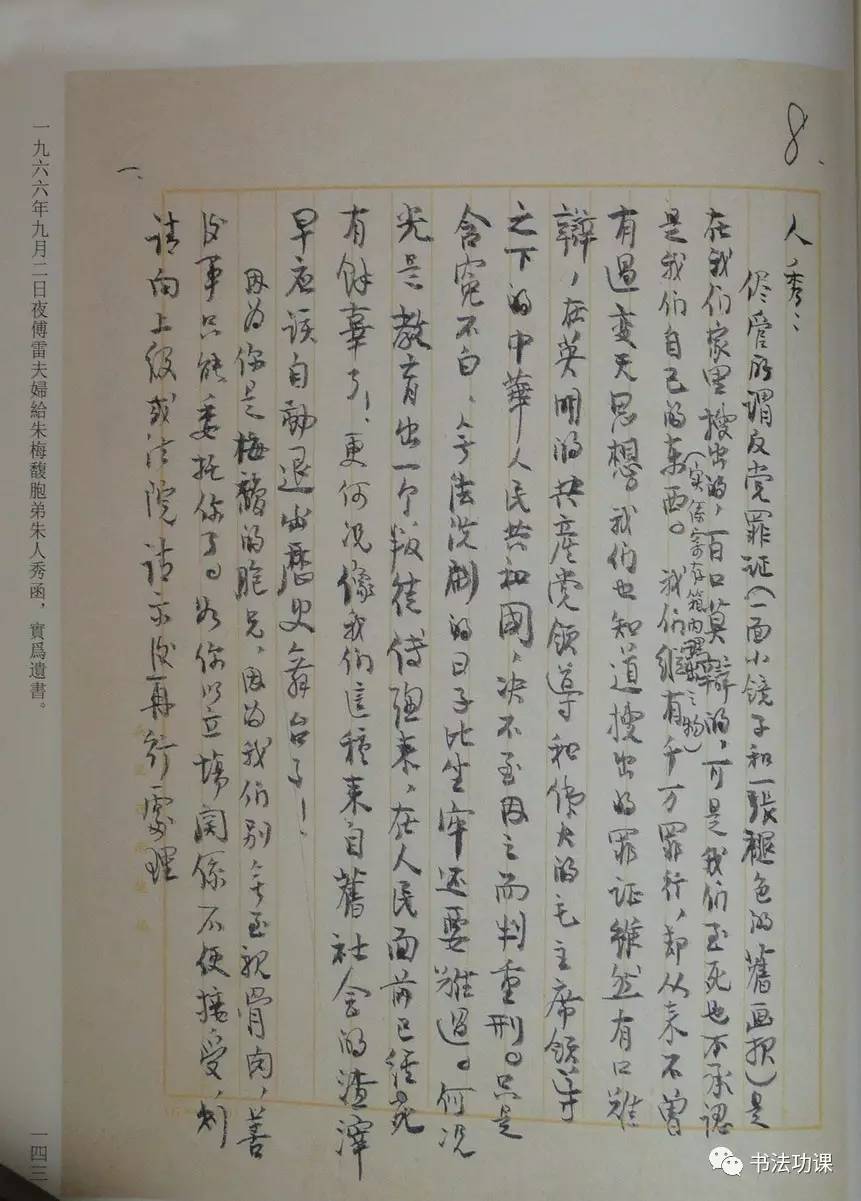 8.
人秀：
儘管所谓反党罪证（一面小镜子和一張褪色的舊画报）是
在我们家里搜出的，百口莫辯的，可是我们至死也不承认
是我们自己的东西。（实係寄存箱内理出之物）我们纵有千万罪行，却从来不曾
有過变天思想。我们也知道搜出的罪证雖然有口难
辯，在英明的共産党领导和伟大的毛主席领导
之下的中華人民共和國，决不至因之而判重刑。只是
含冤不白，无法洗刷的日子比坐牢还要难過。何况
光是教育出一个叛徒傅聰来，在人民面前已经死
有餘辜了！更何况像我们這種来自舊社会的渣滓
早应该自動退出歷史舞台了！
因为你是梅馥的胞兄，因为我们别无至親骨肉，善
後事只能委托你了。如你以立場関係不便接受，则
请向上级或法院请示後再行處理
一、
一九六六年九月二日夜傅雷夫婦給朱梅馥胞弟朱人秀函，實爲遺書。
一四三
书法功课